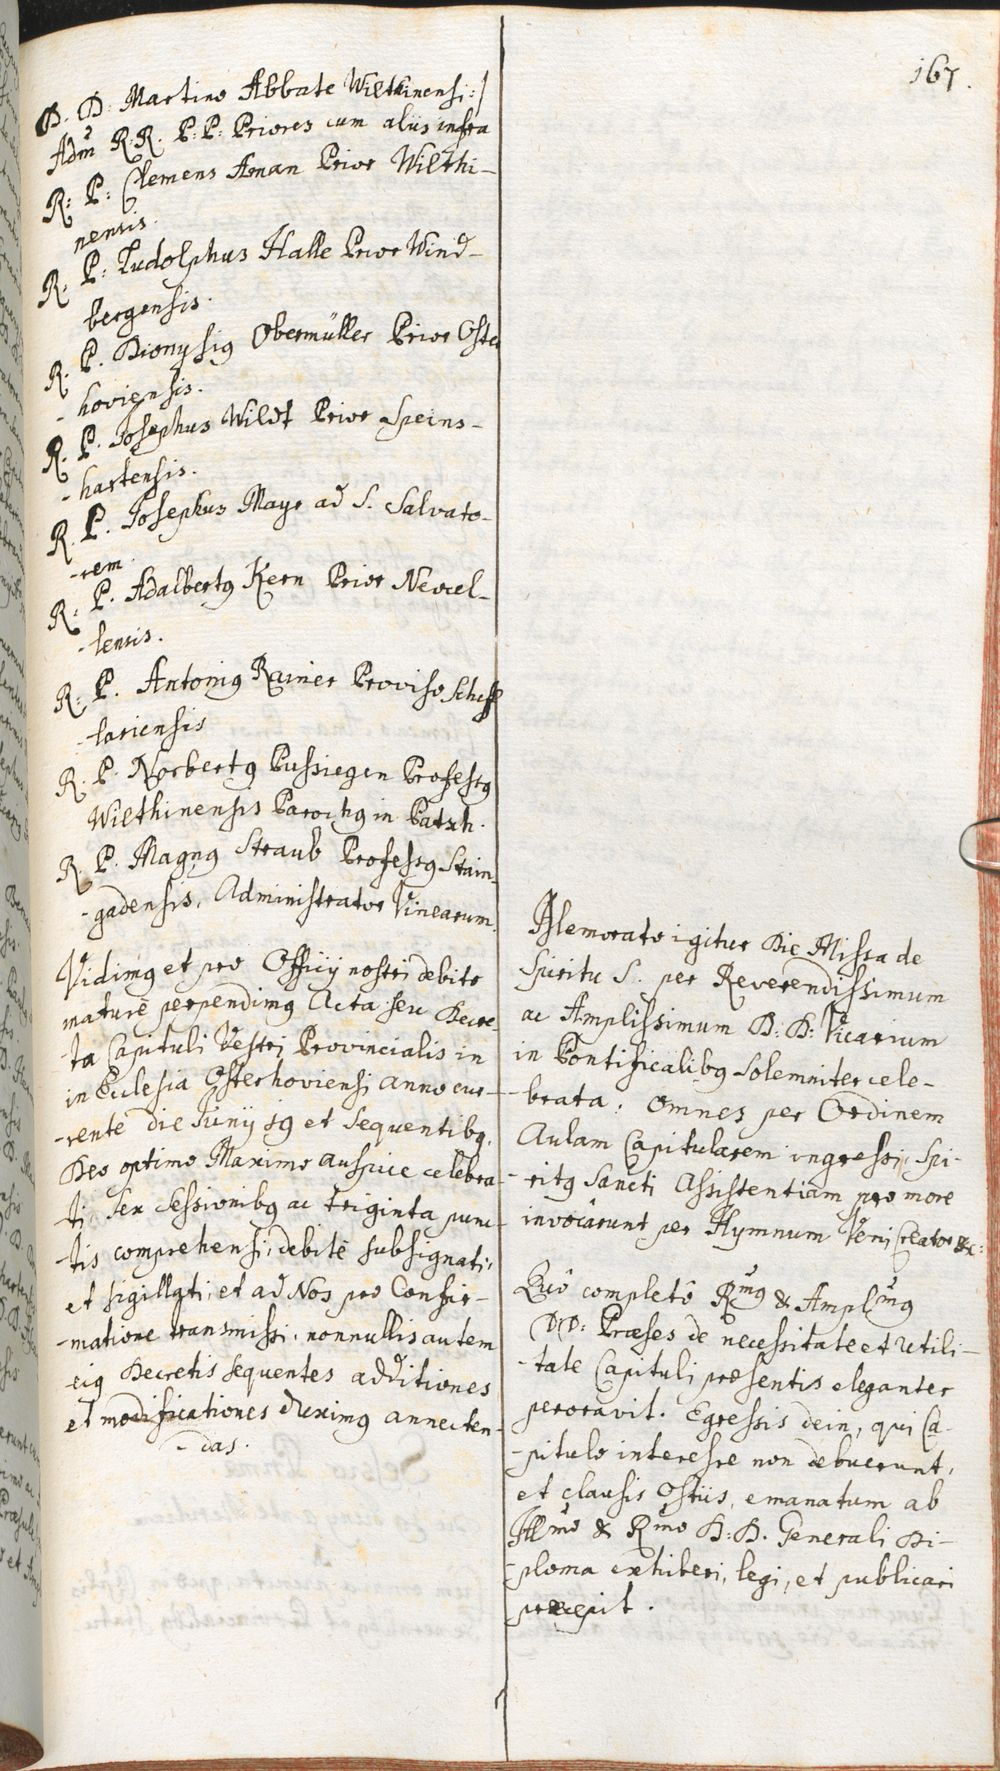 167.
D. D. Martino Abbate Wilthinensi:/
Adm̃ R:R. P:P: Priores cum aliis infra
R: P: Clemens Aman Prior Wilthi-
nensis.
R. P: Ludolphus Halle Prior Wind-
bergensis.
R. P. Dionysiꝯ Obermüller Prior Oster
-hoviensis.
R. P. Josephus Wildt Prior Speins-
-hartensis.
R. P. Josephus Mayr ad S. Salvato-
-rem.
R: P. Adalbertꝯ Kern Prior Neocel-
-lensis.
R: P. Antoniꝯ Rainer Proviso Scheff
-lariensis
R. P. Norbertꝯ Pussiegen Professꝯ
Wilthinensis Parochꝯ in Patsch.
R. P. Magnꝯ Straub Professꝯ Stain-
-gadensis, Administrator Vinearum.
Vidimꝯ et pro Officij nostri debito
maturè perpendimꝯ Acta seu Decre-
-ta Capituli Vestri Provincialis in
in Ecclesia Osterhoviensi anno cur-
-rente die Junij 19 et sequentibꝯ,
Deo optimo Maximo auspice celebra-
-ti sex sessionibꝯ ac triginta punc-
-tis comprehensi, debitè subsignati,
et sigillati, et ad Nos pro Confir-
-matione transmissi. nonnullis autem
eiꝯ Decretis sequentes additiones
et modificationes duximꝯ annecten-
-das.
Memorato igitur Die Missa de
Spiritu S. per Reverendissimum
ac Amplissimum D: D: Vicarium
in Pontificalibꝯ solemniter cele-
-brata: omnes per Ordinem
Aulam Capitularem ingressi, Spi-
-ritꝯ Sancti Assistentiam pro more
invocârunt per Hymnum Veni Creator &c:
Quô completô Rmꝯ & Amplmꝯ
DD: Præses de necessitate et utili-
-tate Capituli præsentis eleganter
peroravit. Egressis dein, qui Ca-
-pitulo interesse non debuerunt,
et clausis Ostiis, emanatum ab
Illmo & Rmo D: D. Generali Di-
-ploma exhiberi, legi, et publicari
præcepit.